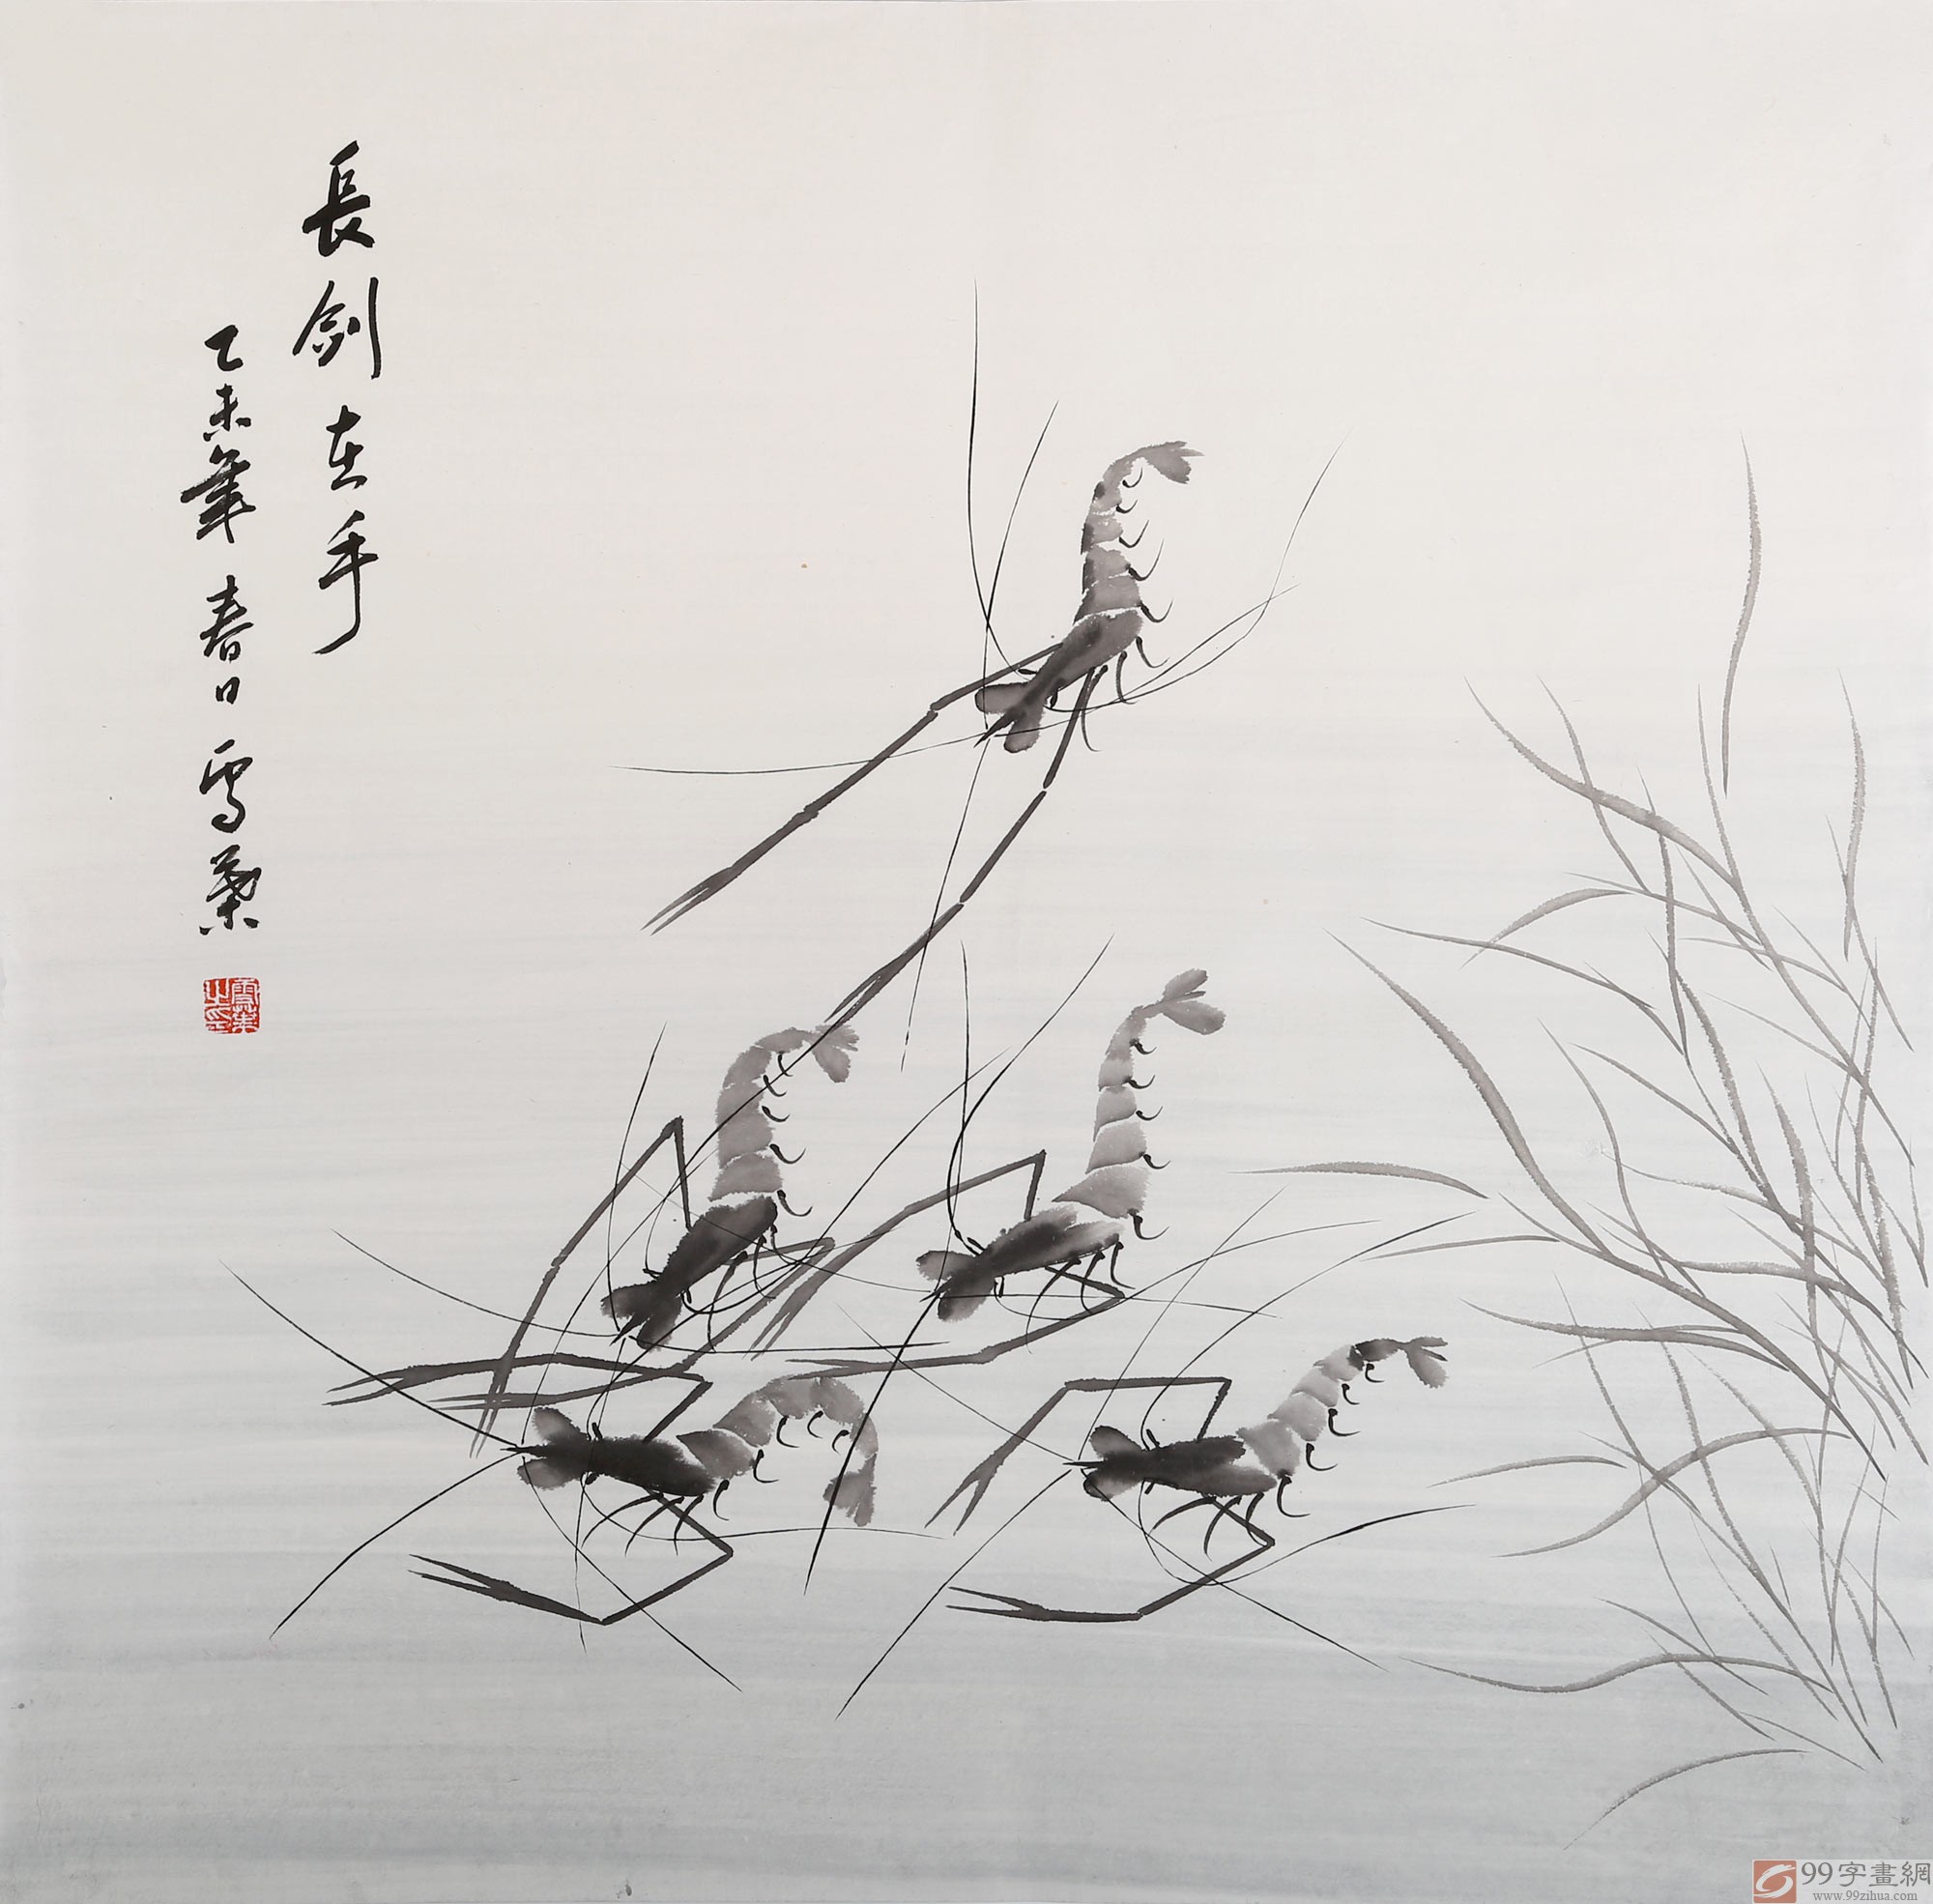 長劍在手
乙未年春日雪葉
99字畫網
www.99zihua.com